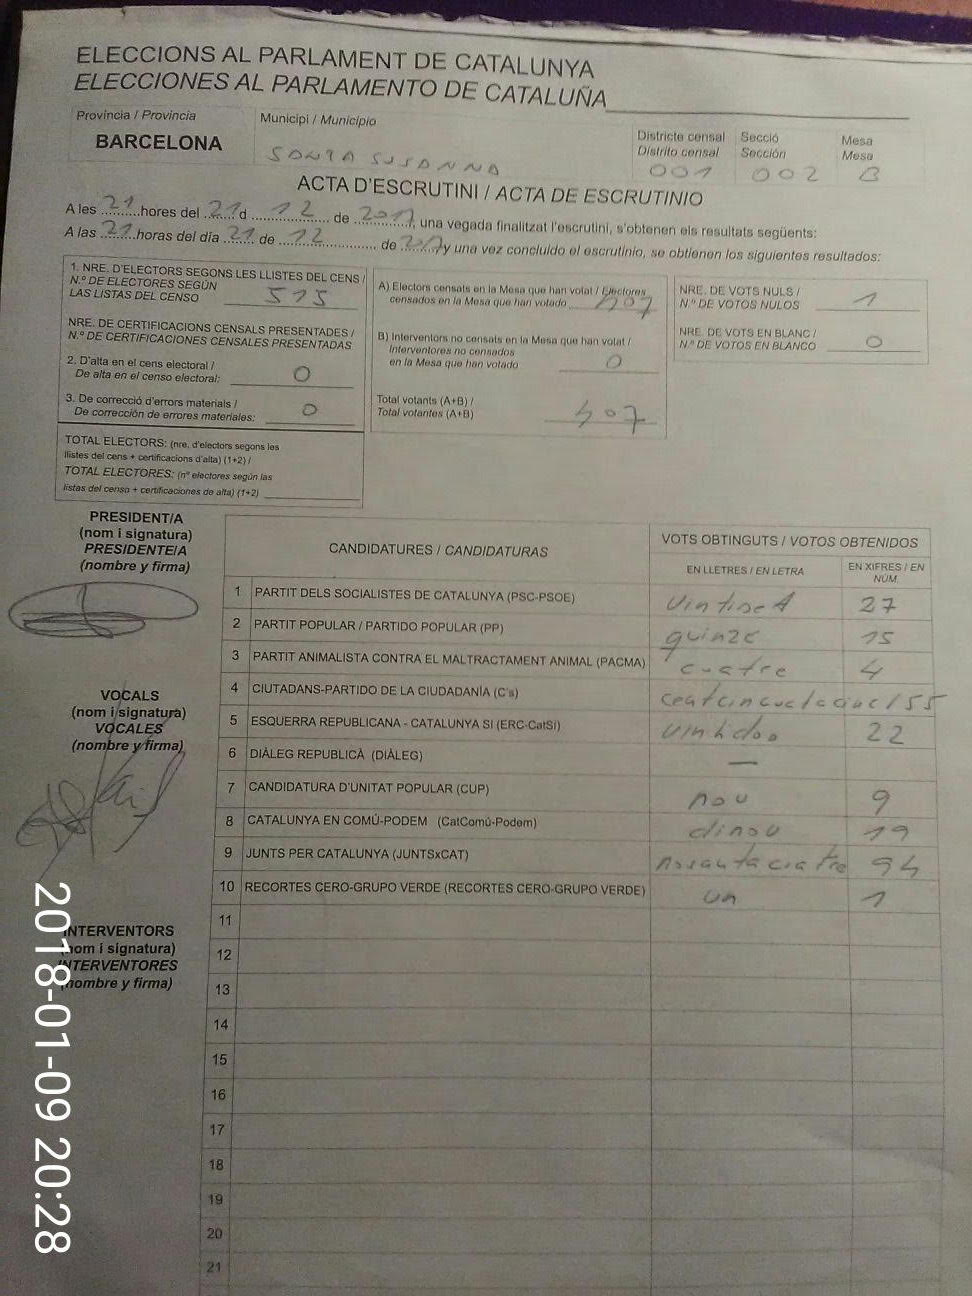 ELECCIONS AL PARLAMENT DE CATALUNYA
ELECCIONES AL PARLAMENTO DE CATALUÑA
Província / Provincia
BARCELONA
Municipi / Municipio
SANTA SUSANNA
Districte censal
Distrito censal
001
Secció
Sección
002
Mesa
Mesa
B
ACTA D'ESCRUTINI / ACTA DE ESCRUTINIO
A les 21 hores del 21 d 12 de 2017, una vegada finalitzat l'escrutini, s'obtenen els resultats següents:
A las 21 horas del día 21 de 12 de 2017 y una vez concluido el escrutinio, se obtienen los siguientes resultados:
1. NRE. D'ELECTORS SEGONS LES LLISTES DEL CENS /
N.º DE ELECTORES SEGÚN
LAS LISTAS DEL CENSO 515
NRE. DE CERTIFICACIONS CENSALS PRESENTADES /
N.º DE CERTIFICACIONES CENSALES PRESENTADAS
2. D'alta en el cens electoral /
De alta en el censo electoral: 0
3. De correcció d'errors materials /
De corrección de errores materiales: 0
TOTAL ELECTORS: (nre. d'electors segons les
llistes del cens + certificacions d'alta) (1+2) /
TOTAL ELECTORES: (nº electores según las
listas del censo + certificaciones de alta) (1+2)
A) Electors censats en la Mesa que han votat / Electores
censados en la Mesa que han votado 407
B) Interventors no censats en la Mesa que han votat /
Interventores no censados
en la Mesa que han votado 0
Total votants (A+B) /
Total votantes (A+B) 407
NRE. DE VOTS NULS /
N.º DE VOTOS NULOS 1
NRE. DE VOTS EN BLANC /
N.º DE VOTOS EN BLANCO 0
PRESIDENT/A
(nom i signatura)
PRESIDENTE/A
(nombre y firma)
VOCALS
(nom i signatura)
VOCALES
(nombre y firma)
INTERVENTORS
(nom i signatura)
INTERVENTORES
(nombre y firma)
CANDIDATURES / CANDIDATURAS
VOTS OBTINGUTS / VOTOS OBTENIDOS
EN LLETRES / EN LETRA
EN XIFRES / EN
NÚM.
1 PARTIT DELS SOCIALISTES DE CATALUNYA (PSC-PSOE) 27
2 PARTIT POPULAR / PARTIDO POPULAR (PP) quinze 15
3 PARTIT ANIMALISTA CONTRA EL MALTRACTAMENT ANIMAL (PACMA) cuatre 4
4 CIUTADANS-PARTIDO DE LA CIUDADANÍA (C's) 155
5 ESQUERRA REPUBLICANA - CATALUNYA SI (ERC-CatSí) vintidos 22
6 DIÀLEG REPUBLICÀ (DIÀLEG) —
7 CANDIDATURA D'UNITAT POPULAR (CUP) nou 9
8 CATALUNYA EN COMÚ-PODEM (CatComú-Podem) dinou 19
9 JUNTS PER CATALUNYA (JUNTSxCAT) 94
10 RECORTES CERO-GRUPO VERDE (RECORTES CERO-GRUPO VERDE) un 1
11
12
13
14
15
16
17
18
19
20
21
2018-01-09 20:28